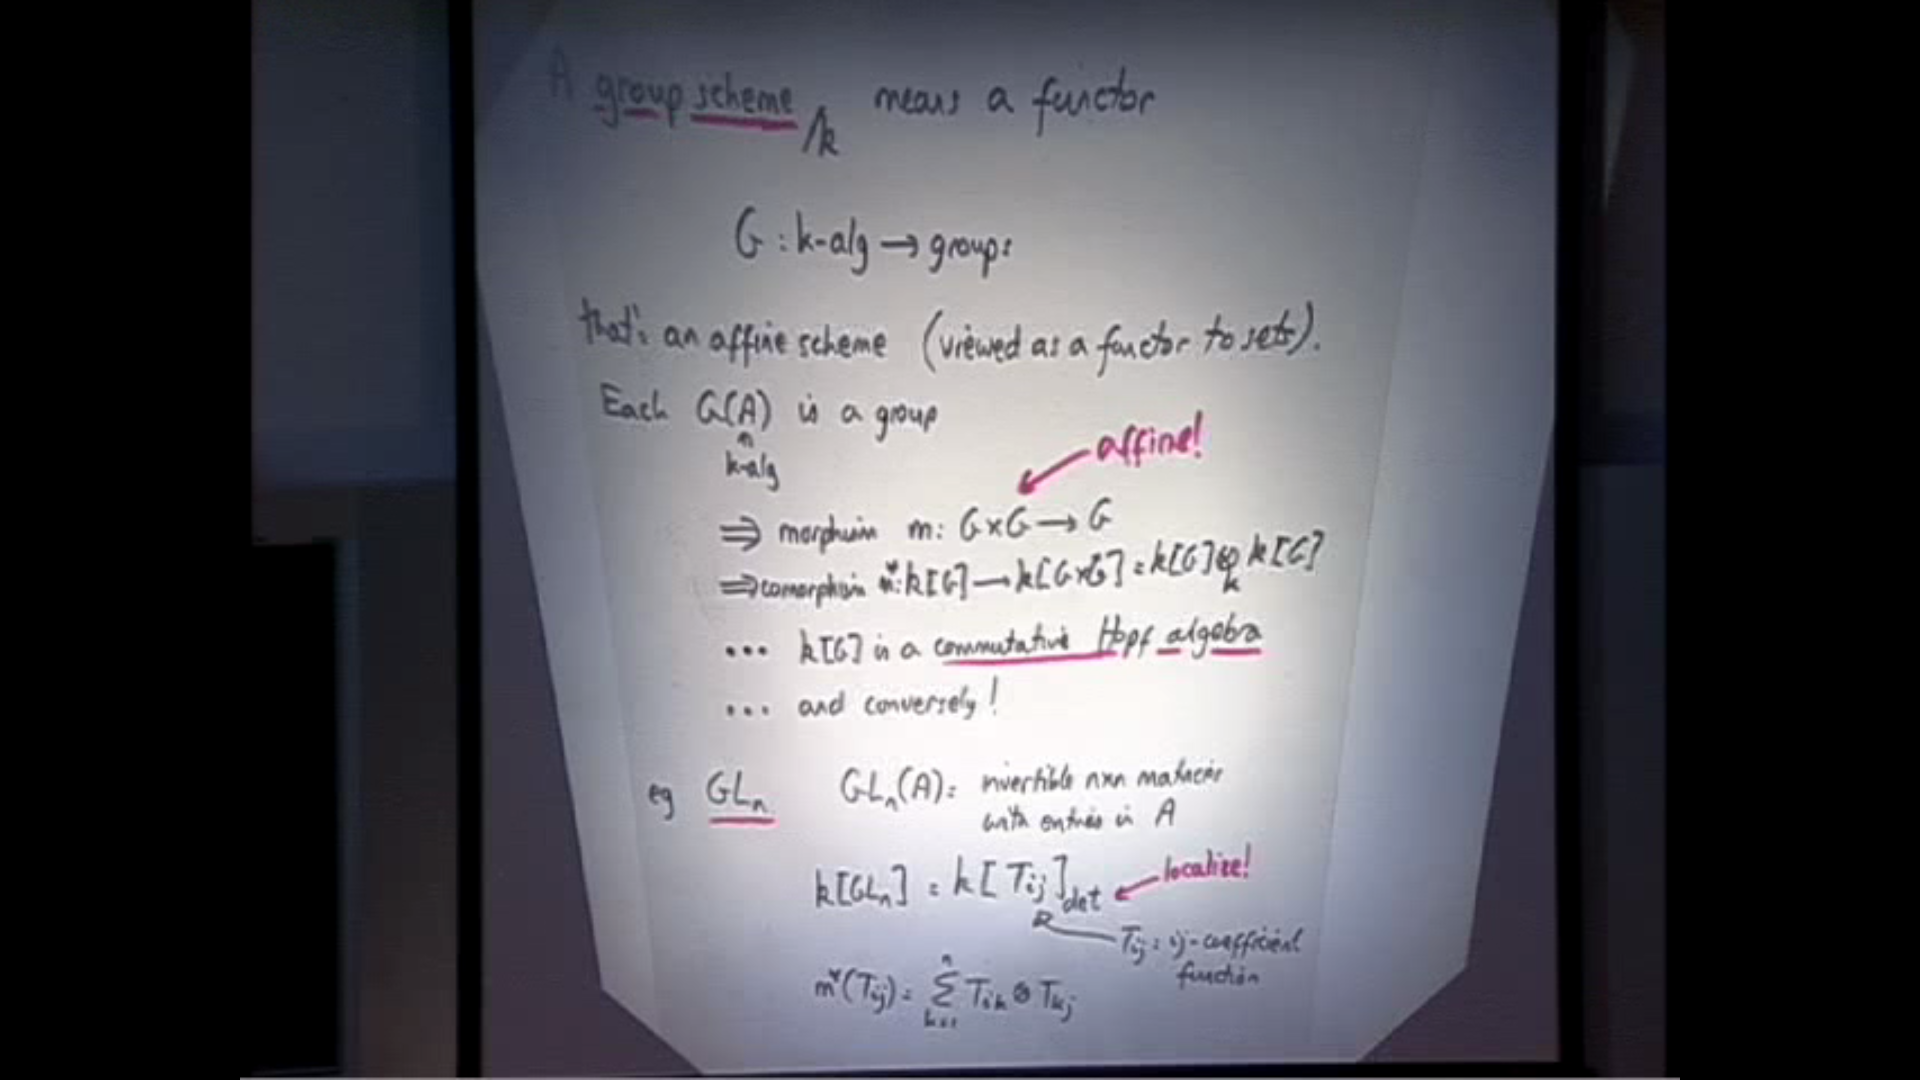 A group scheme /k means a functor
G : k-alg → groups
that's an affine scheme (viewed as a functor to sets).
Each G(A) is a group
k-alg
affine!
⇒ morphism m: G×G → G
⇒ comorphism m*: k[G] → k[G×G] = k[G]⊗k[G]
k
... k[G] is a commutative Hopf algebra
... and conversely!
eg GLn GLn(A) = invertible n×n matrices
with entries in A
k[GLn] = k[Tij]det localize!
Tij = ij-coefficient
function
m*(Tij) = n∑k=1 Tik ⊗ Tkj